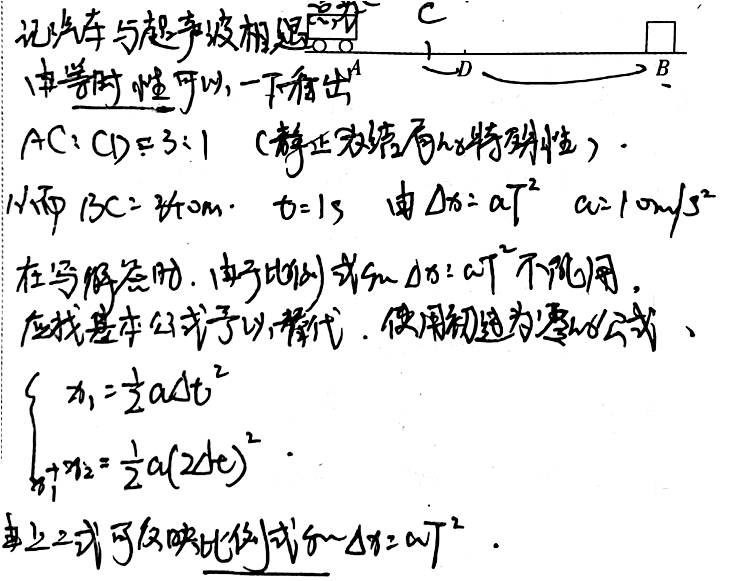 C
A D B
记汽车与超声波相遇
由等时性可以,一下看出
AC:CD=3:1 (静止或结尾的特殊性).
从而 BC=340m. t=1s 由 Δx=aT² a=10m/s²
在写解答时.由于比例式和 Δx=aT² 不能用,
应找基本公式予以替代.使用初速为零的公式、
x₁=½aΔt²
x₁+x₂=½a(2Δt)².
由上二式可反映比例式和 Δx=aT².